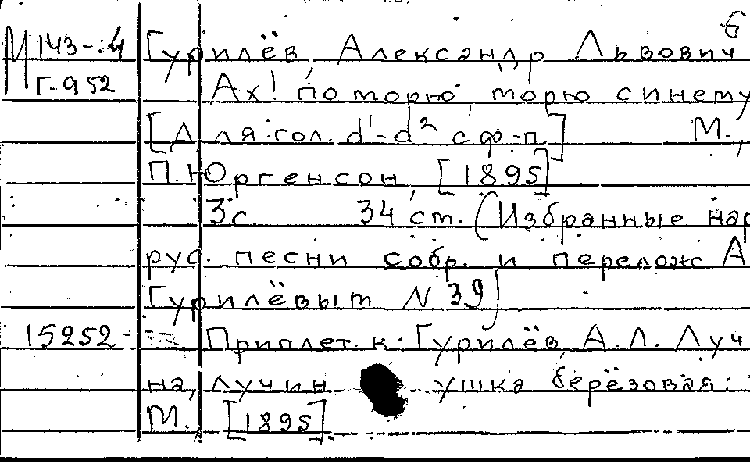 6
М 143-4 Гурилёв, Александр Львович
Г-952 Ах! по морю, морю синему
[Для гол. d¹-d² с ф-п] М.,
П. Юргенсон, [1895]
3с 34 см. (Избранные нар
рус. песни собр. и перелож А
Гурилёвым N 39)
15252- Приплет. к: Гурилёв, А.Л. Луч
на, лучин ушка берёзовая:
М., [1895].